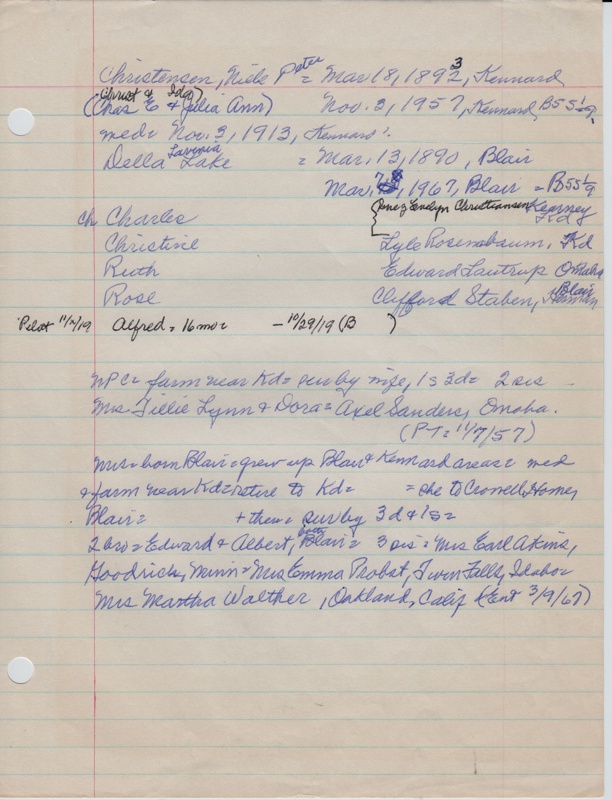 Christensen, Niels Peter = Mar 18, 1892 3, Kennard
(Christ & Ida)
(Chas E & Julia Ann) Nov. 3, 1957, Kennard, B55 1/9
med = Nov. 3, 1913, Kennard.
Della Lavinia Lake = Mar. 13, 1890, Blair
Mar, 7 8, 1967, Blair = B55 1/9
ch Charles {Inez Evelyn Christiansen Kearney Kd
Christine Lyle Rosenbaum, Kd
Ruth Edward Lautrup Omaha
Rose Clifford Staben, Blair Herman
Pilot 11/2/19 Alfred = 16 mo = - 10/29/19 (B )
NPC = farm near Kd = sur by wife, 1 s 3 d = 2 sis
Mrs. Tillie Lynn & Dora = Axel Sanders, Omaha.
(P-T = 11/7/57)
Mrs = born Blair = grew up Blair & Kennard areas = med
& farm near Kd = retire to Kd = = she to Crowell Home,
Blair = + then = sur by 3 d & 1 s =
2 bro = Edward & Albert, both Blair = 3 sis = Mrs Earl Atkins,
Goodrich, Minn = Mrs Emma Probst, Twin Falls, Idaho =
Mrs Martha Walther, Oakland, Calif (Ent 3/9/67)